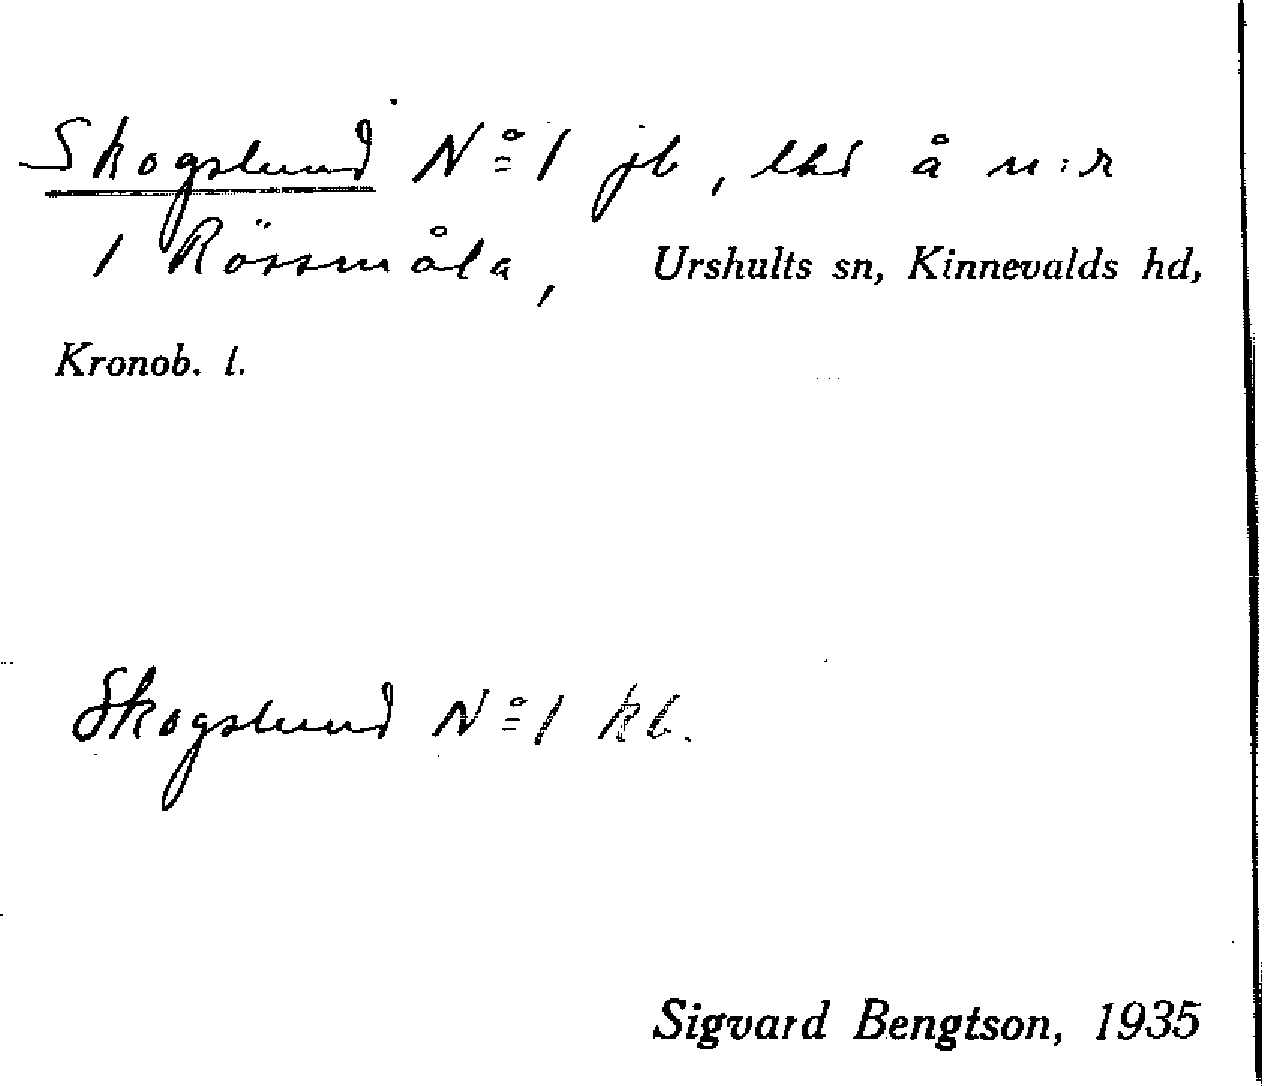 Skogslund No 1 jb, lhd å n:r
1 Rössmåla, Urshults sn, Kinnevalds hd,
Kronob. l.
Skogslund No 1 kb.
Sigvard Bengtson, 1935